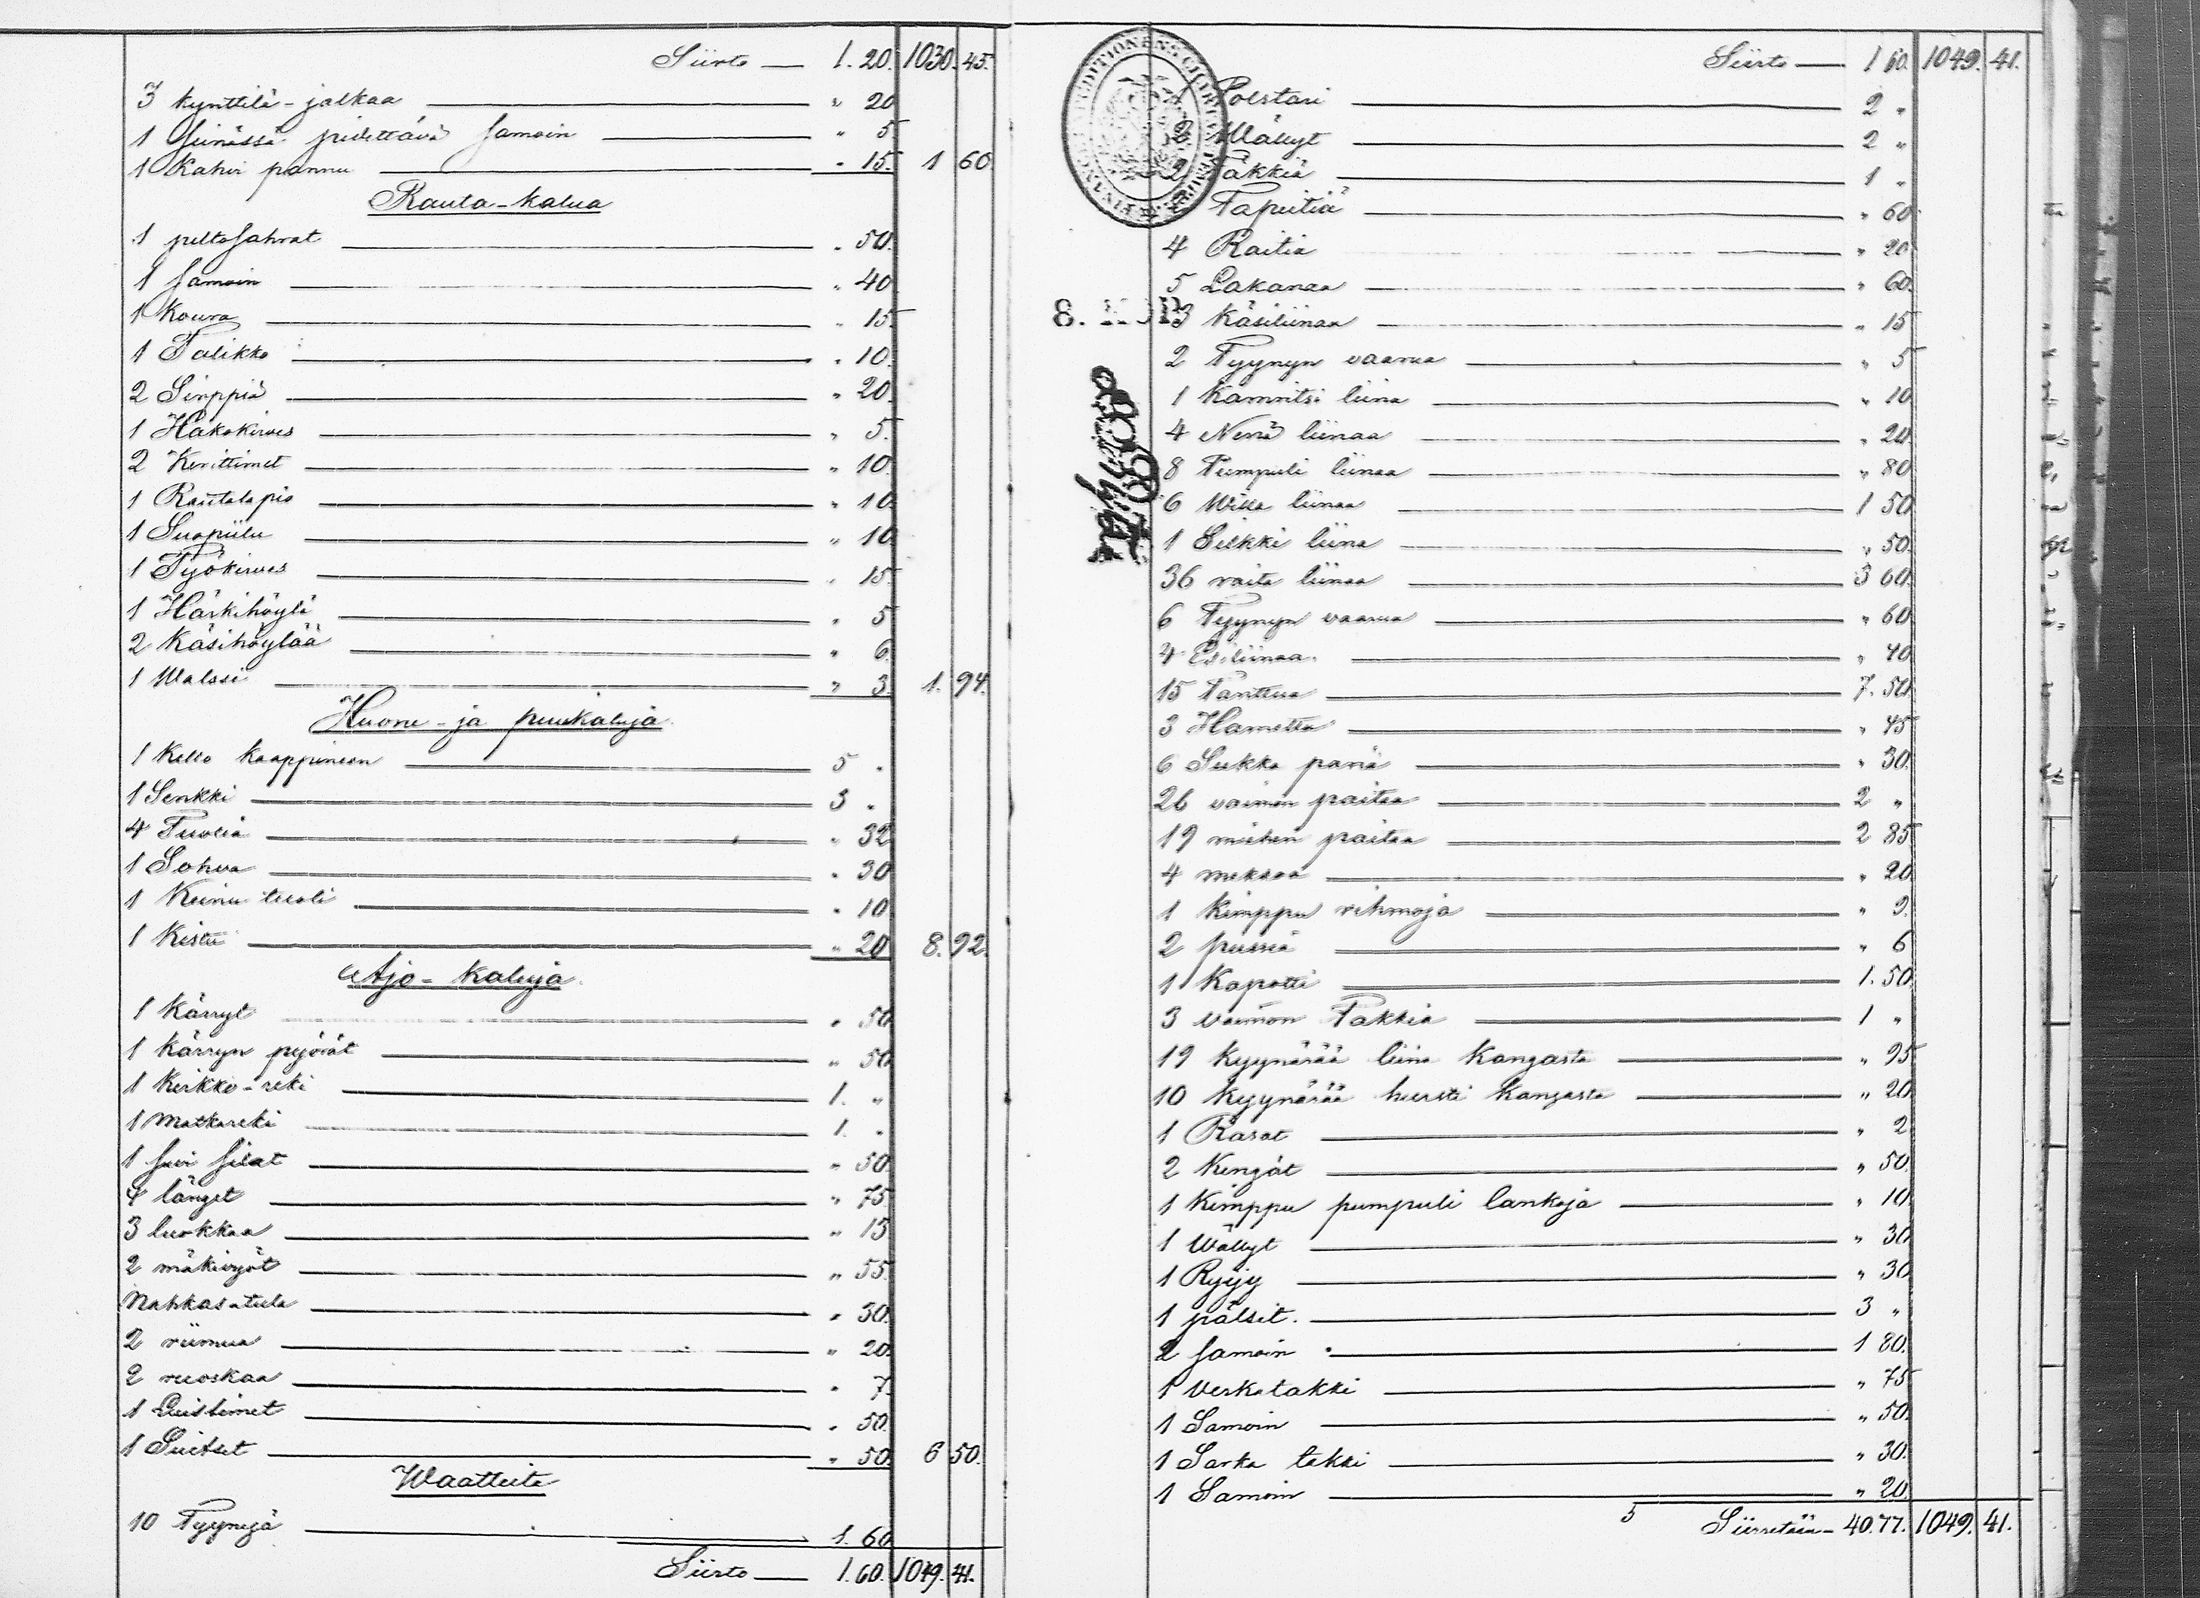 Siirto — 1. 20. 1030. 45.
3 kynttilä-jalkaa — " 20
1 Seinässä pidettävä Samoin — " 5
1 Kahvi pannu — " 15. 1 60
Rauta-kalua
1 peltosahrat — " 50.
1 Samoin — " 40
1 Koura — " 15.
1 Talikko — " 10.
2 Sirppiä — " 20.
1 Hakokirves — " 5.
2 Kerittimet — " 10.
1 Rautalapio — " 10
1 Suopiilu — " 10
1 Työkirves — " 15
1 Härkihöylä — " 5
2 Käsihöylää — " 6.
1 Walssi — " 3. 1. 94.
Huone-ja puukaluja
1 Kello kaappineen — 5 "
1 Senkki — 3 "
4 Tuolia — " 32
1 Sohva — " 30
1 Keinu tuoli — " 10
1 Kistu — " 20 8. 92.
Ajo-kaluja.
1 Kärryt — " 50.
1 Kärryn pyörät — " 50
1 Kirkko-reki — 1. "
1 Matkareki — 1. "
1 Suri Silat — " 50.
4 länget — " 75.
3 luokkaa — " 15
2 mäkivyöt — " 55.
Nahkasatula — " 30.
2 riimua — " 20.
2 ruoskaa — " 7.
1 Suistimet — " 50.
1 Suitset — " 50. 6 50.
Waatteita
10 Tyynyjä — 1. 60
Siirto — 1. 60. 1049. 41.
Siirto — 1 60. 1049. 41.
Polstari — 2 "
2 Wällyt — 2 "
2 Täkkiä — 1 "
Tapeitiä — " 60.
4 Raitia — " 20
5 Lakanaa — " 60.
3 Käsiliinaa — " 15
2 Tyynyn vaarua — " 5
1 Kamritsi liina — " 10
4 Nenä liinaa — " 20.
8 Pumpuli liinaa — " 80
6 Willa liinaa — 1 50
1 Silkki liina — " 50.
36 raita liinaa — 3 60.
6 Tyynyn vaarua — " 60
4 Esiliinaa. — " 40
15 Tanttua — 7. 50.
3 Hametta — " 45
6 Sukka pariä — " 30.
26 vaimon paitaa — 2 "
19 miehen paitaa — 2 85
4 mekkoa — " 20
1 Kimppu rihmoja — " 9.
2 pussiä — " 6
1 Kapotti — 1. 50
3 vaimon Takkia — 1 "
19 Kyynärää liina Kangasta — " 95
10 Kyynärää hursti Kangasta — " 20
1 Rasat — " 2
2 Kengät — " 50.
1 Kimppu pumpuli lankoja — " 10
1 Wällyt — " 30
1 Ryyy — " 30
1 pälsit. — 3 "
2 Samoin — 1 80.
1 Verkatakki — " 75
1 Samoin — " 50.
1 Sarka takki — " 30.
1 Samoin — " 20.
5 Siirretään — 40. 77. 1049. 41.